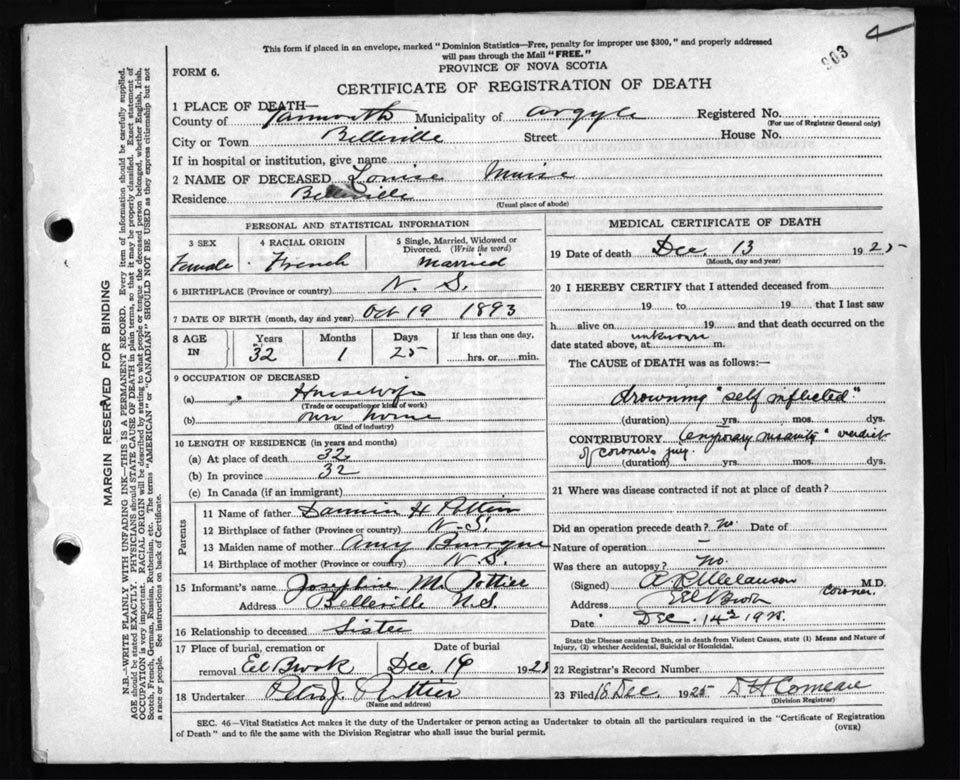 This form if placed in an envelope, marked "Dominion Statistics—Free, penalty for improper use $300," and properly addressed
will pass through the Mail "FREE."
903
PROVINCE OF NOVA SCOTIA
FORM 6.
CERTIFICATE OF REGISTRATION OF DEATH
MARGIN RESERVED FOR BINDING
N.B.—WRITE PLAINLY WITH UNFADING INK—THIS IS A PERMANENT RECORD. Every item of information should be carefully supplied.
AGE should be stated EXACTLY. PHYSICIANS should STATE CAUSE OF DEATH in plain terms, so that it may be properly classified. Exact statement of
OCCUPATION is very important. RACIAL ORIGIN will be described by stating to what people or tongue the deceased person belonged, whether English, Irish,
Scotch, French, German, Russian, Ruthenian, etc. The terms "AMERICAN" or "CANADIAN" SHOULD NOT BE USED as they express citizenship but not
a race or people. See instructions on back of Certificate.
1 PLACE OF DEATH—
County of Yarmouth Municipality of Argyle Registered No.
(For use of Registrar General only)
City or Town Belleville Street House No.
If in hospital or institution, give name
2 NAME OF DECEASED Louise Muise
Residence Belleville
(Usual place of abode)
PERSONAL AND STATISTICAL INFORMATION
3 SEX 4 RACIAL ORIGIN 5 Single, Married, Widowed or
Divorced. (Write the word)
Female French Married
6 BIRTHPLACE (Province or country) N. S.
7 DATE OF BIRTH (month, day and year) Oct 19 1893
8 AGE IN Years Months Days If less than one day,
32 1 25 hrs. or min.
9 OCCUPATION OF DECEASED
(a) Housewife
(Trade or occupation or kind of work)
(b) own home
(Kind of industry)
10 LENGTH OF RESIDENCE (in years and months)
(a) At place of death 32
(b) In province 32
(c) In Canada (if an immigrant)
Parents
11 Name of father H Pottier
12 Birthplace of father (Province or country) N.S.
13 Maiden name of mother Amy Bourque
14 Birthplace of mother (Province or country) N.S.
15 Informant's name Josephine M. Pottier
Address Belleville N.S.
16 Relationship to deceased Sister
17 Place of burial, cremation or Date of burial
removal Eel Brook Dec 1925
18 Undertaker Pottier
(Name and address)
MEDICAL CERTIFICATE OF DEATH
19 Date of death Dec. 13 1925
(Month, day and year)
20 I HEREBY CERTIFY that I attended deceased from
19 to 19 that I last saw
h alive on 19 and that death occurred on the
date stated above, at unknown m.
The CAUSE OF DEATH was as follows:
drowning "self inflicted"
(duration) yrs. mos. dys.
CONTRIBUTORY temporary insanity" verdict
of coroner's jury.
(duration) yrs. mos. dys.
21 Where was disease contracted if not at place of death?
Did an operation precede death? No Date of
Nature of operation —
Was there an autopsy? No.
(Signed) Melanson M.D.
coroner
Address Eel Brook
Date Dec. 14 1925
State the Disease causing Death, or in death from Violent Causes, state (1) Means and Nature of
Injury, (2) whether Accidental, Suicidal or Homicidal.
22 Registrar's Record Number
23 Filed 18 Dec. 1925 D H Comeau
(Division Registrar)
SEC. 46—Vital Statistics Act makes it the duty of the Undertaker or person acting as Undertaker to obtain all the particulars required in the "Certificate of Registration
of Death" and to file the same with the Division Registrar who shall issue the burial permit.
(OVER)